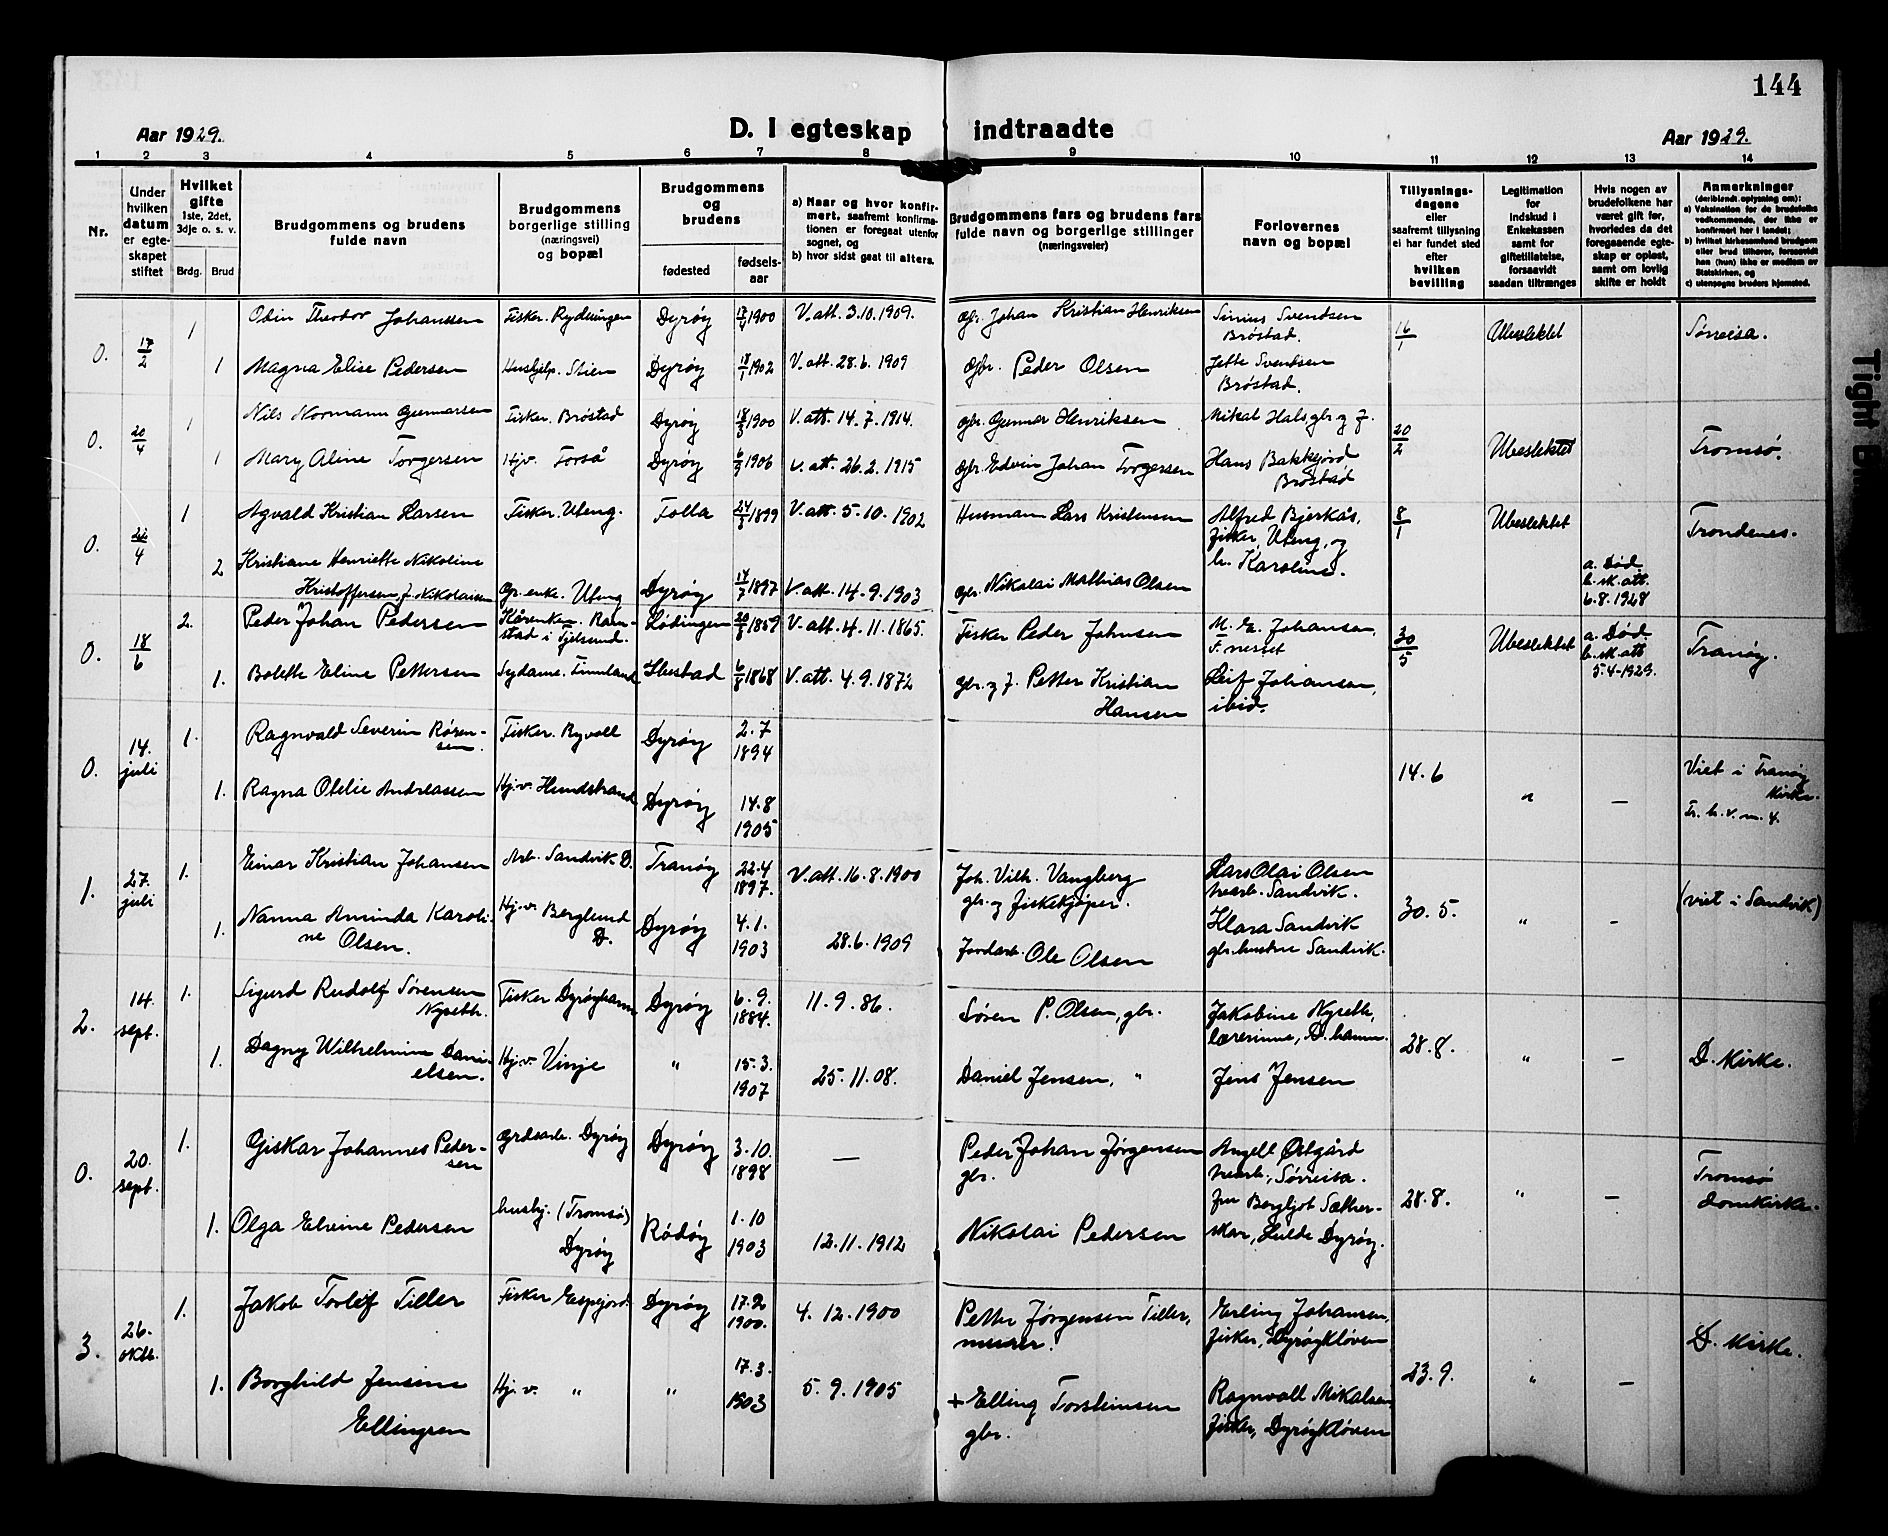 144
Aar 1929.
D. I egteskap indtraadte
Aar 1929.
1 2 3 4 5 6 7 8 9 10 11 12 13 14
Nr.
Under hvilken datum er egteskapet stiftet
Hvilket gifte
1ste, 2det, 3dje o. s. v.
Brdg. Brud
Brudgommens og brudens fulde navn
Brudgommens borgerlige stilling (næringsvei) og bopæl
Brudgommens og brudens
fødested
fødselsaar
a) Naar og hvor konfirmert, saafremt konfirmationen er foregaat utenfor sognet, og
b) hvor sidst gaat til alters.
Brudgommens fars og brudens fars fulde navn og borgerlige stillinger (næringsveier)
Forlovernes navn og bopæl
Tillysningsdagene eller saafremt tillysning ei har fundet sted efter hvilken bevilling
Legitimation for indskud i Enkekassen samt for giftetillatelse, forsaavidt saadan tiltrænges
Hvis nogen av brudefolkene har været gift før, hvorledes da det foregaaende egteskap er opløst, samt om lovlig skifte er holdt
Anmerkninger
(deriblandt oplysning om):
a) Vaksination for de brudefolks vedkommende, der ikke er konfirmert her i landet;
b) hvilket kirkesamfund brudgom eller brud tilhører, forsaavidt han (hun) ikke er medlem av Statskirken, og
c) utensogns brudens hjemsted.
0. 17/2 1 Odin Theodor Johanssen Fisker. Dyrøy 1900 V. att. 3.10.1909. Gbr. Johan Kristian Henriksen Sinius Svendsen Brøstad. 16/1 Ubeslektet Sørreisa.
1 Magna Elise Pedersen Hushjelp. Stien Dyrøy 18/1 1902 V. att. 28.6.1909 Gbr. Peder Olsen Jette Svendsen Brøstad.
0. 20/4 1 Nils Normann Gunnarsen Fisker. Brøstad Dyrøy 18/3 1900 V. att. 14.7.1914. gbr. Gunnar Henriksen Mikal Hals gbr. og f. 20/2 Ubeslektet Tromsø.
1 Mary Aline Torgersen Hjv. Forså Dyrøy 1906 V. att. 26.2.1915 gbr. Edvin Johan Torgersen Hans Bakkejord Brøstad
0. 22/4 1 Agvald Kristian Larsen Fisker. Uteng. Folla 1899 V. att. 5.10.1902 Husmann Lars Kristensen Alfred Bjerkås, fisker Uteng, og h. Karoline. 8/1 Ubeslektet Trondenes.
2 Kristiane Henriette Nikoline Kristoffersen, f. Nikolaisen Gr. enke. Uteng Dyrøy 1897 V. att. 14.9.1903 gbr. Nikolai Mathias Olsen a. Død b. sk. att. 6.8.1928
0. 18/6 2. Peder Johan Pedersen Kårenkem. Ramstad i Tjelsund. Lødingen 1859 V. att. 4.11.1865. Fisker Peder Johnsen M. E. Johansen, Finneset 30/5 Ubeslektet a. Død b. sk. att 5.4.1929. Tranøy.
1. Bolette Eline Pettersen Sydame. Finnland Ibestad 6/8 1868 V. att. 4.9.1872 gbr. og f. Petter Kristian Hansen Leif Johansen, ibid.
0. 14. juli 1. Ragnvald Severin Rørensen. Fisker. Ryvoll Dyrøy 2.7 1894 14.6 " — Viet i Tranøy kirke. Tr. h. v. m. 4.
1. Ragna Otelie Andreassen Hj.v. Hundstrand Dyrøy 14.8 1905
1. 27. juli 1. Einar Kristian Johansen Arb. Sandvik D. Tranøy 22.4 1897. V. att. 16.8.1900 Joh. Vilh. Vangberg gbr. og fiskekjøper. Lars Olai Olsen Sandvik. 30.5. " — (viet i Sandvik)
1. Nanna Aminda Karoline Olsen. Hj.v. Berglund D. Dyrøy 4.1. 1903 28.6.1909 Jordarb. Ole Olsen Klara Sandvik gbr. hustru Sandvik.
2. 14. sept. 1. Sigurd Rudolf Sørensen Nyseth. Fisker Dyrøyhamn Dyrøy 6.9. 1884. 11.9.86. Søren P. Olsen, gbr. Jakobine Nyseth, lærerinne, D.hamn. 28.8. " — D. Kirke.
1. Dagny Wilhelmine Danielsen. Hj.v. Vinje " 15.3. 1907 25.11.08. Daniel Jensen, " Jens Jensen
0. 20. sept. 1. Giskar Johannes Pedersen Dyrøy Dyrøy 3.10. 1898 — Peder Johan Jørgensen gbr. Angell Østgård Sørreisa. 28.8. " — Tromsø domkirke.
1. Olga Elvine Pedersen hushj. (Tromsø) Dyrøy Rødøy 1.10 1903 12.11.1912 Nikolai Pedersen fru Bergljot Sætherskar, Hulde Dyrøy.
3. 26. oktb. 1. Jakob Torlef Tiller Fisker Espejord Dyrøy 17.2 1900. 4.12.1900 Petter Jørgensen Tiller, murer. Erling Johansen, fisker, Dyrøykløven 23.9. " — D. Kirke.
1. Borghild Jensine Ellingsen Hj.v. " " 17.3. 1903 5.9.1905 + Elling Torsteinsen gbr. Ragnvall Mikalsen fisker, Dyrøykløven
Tight B